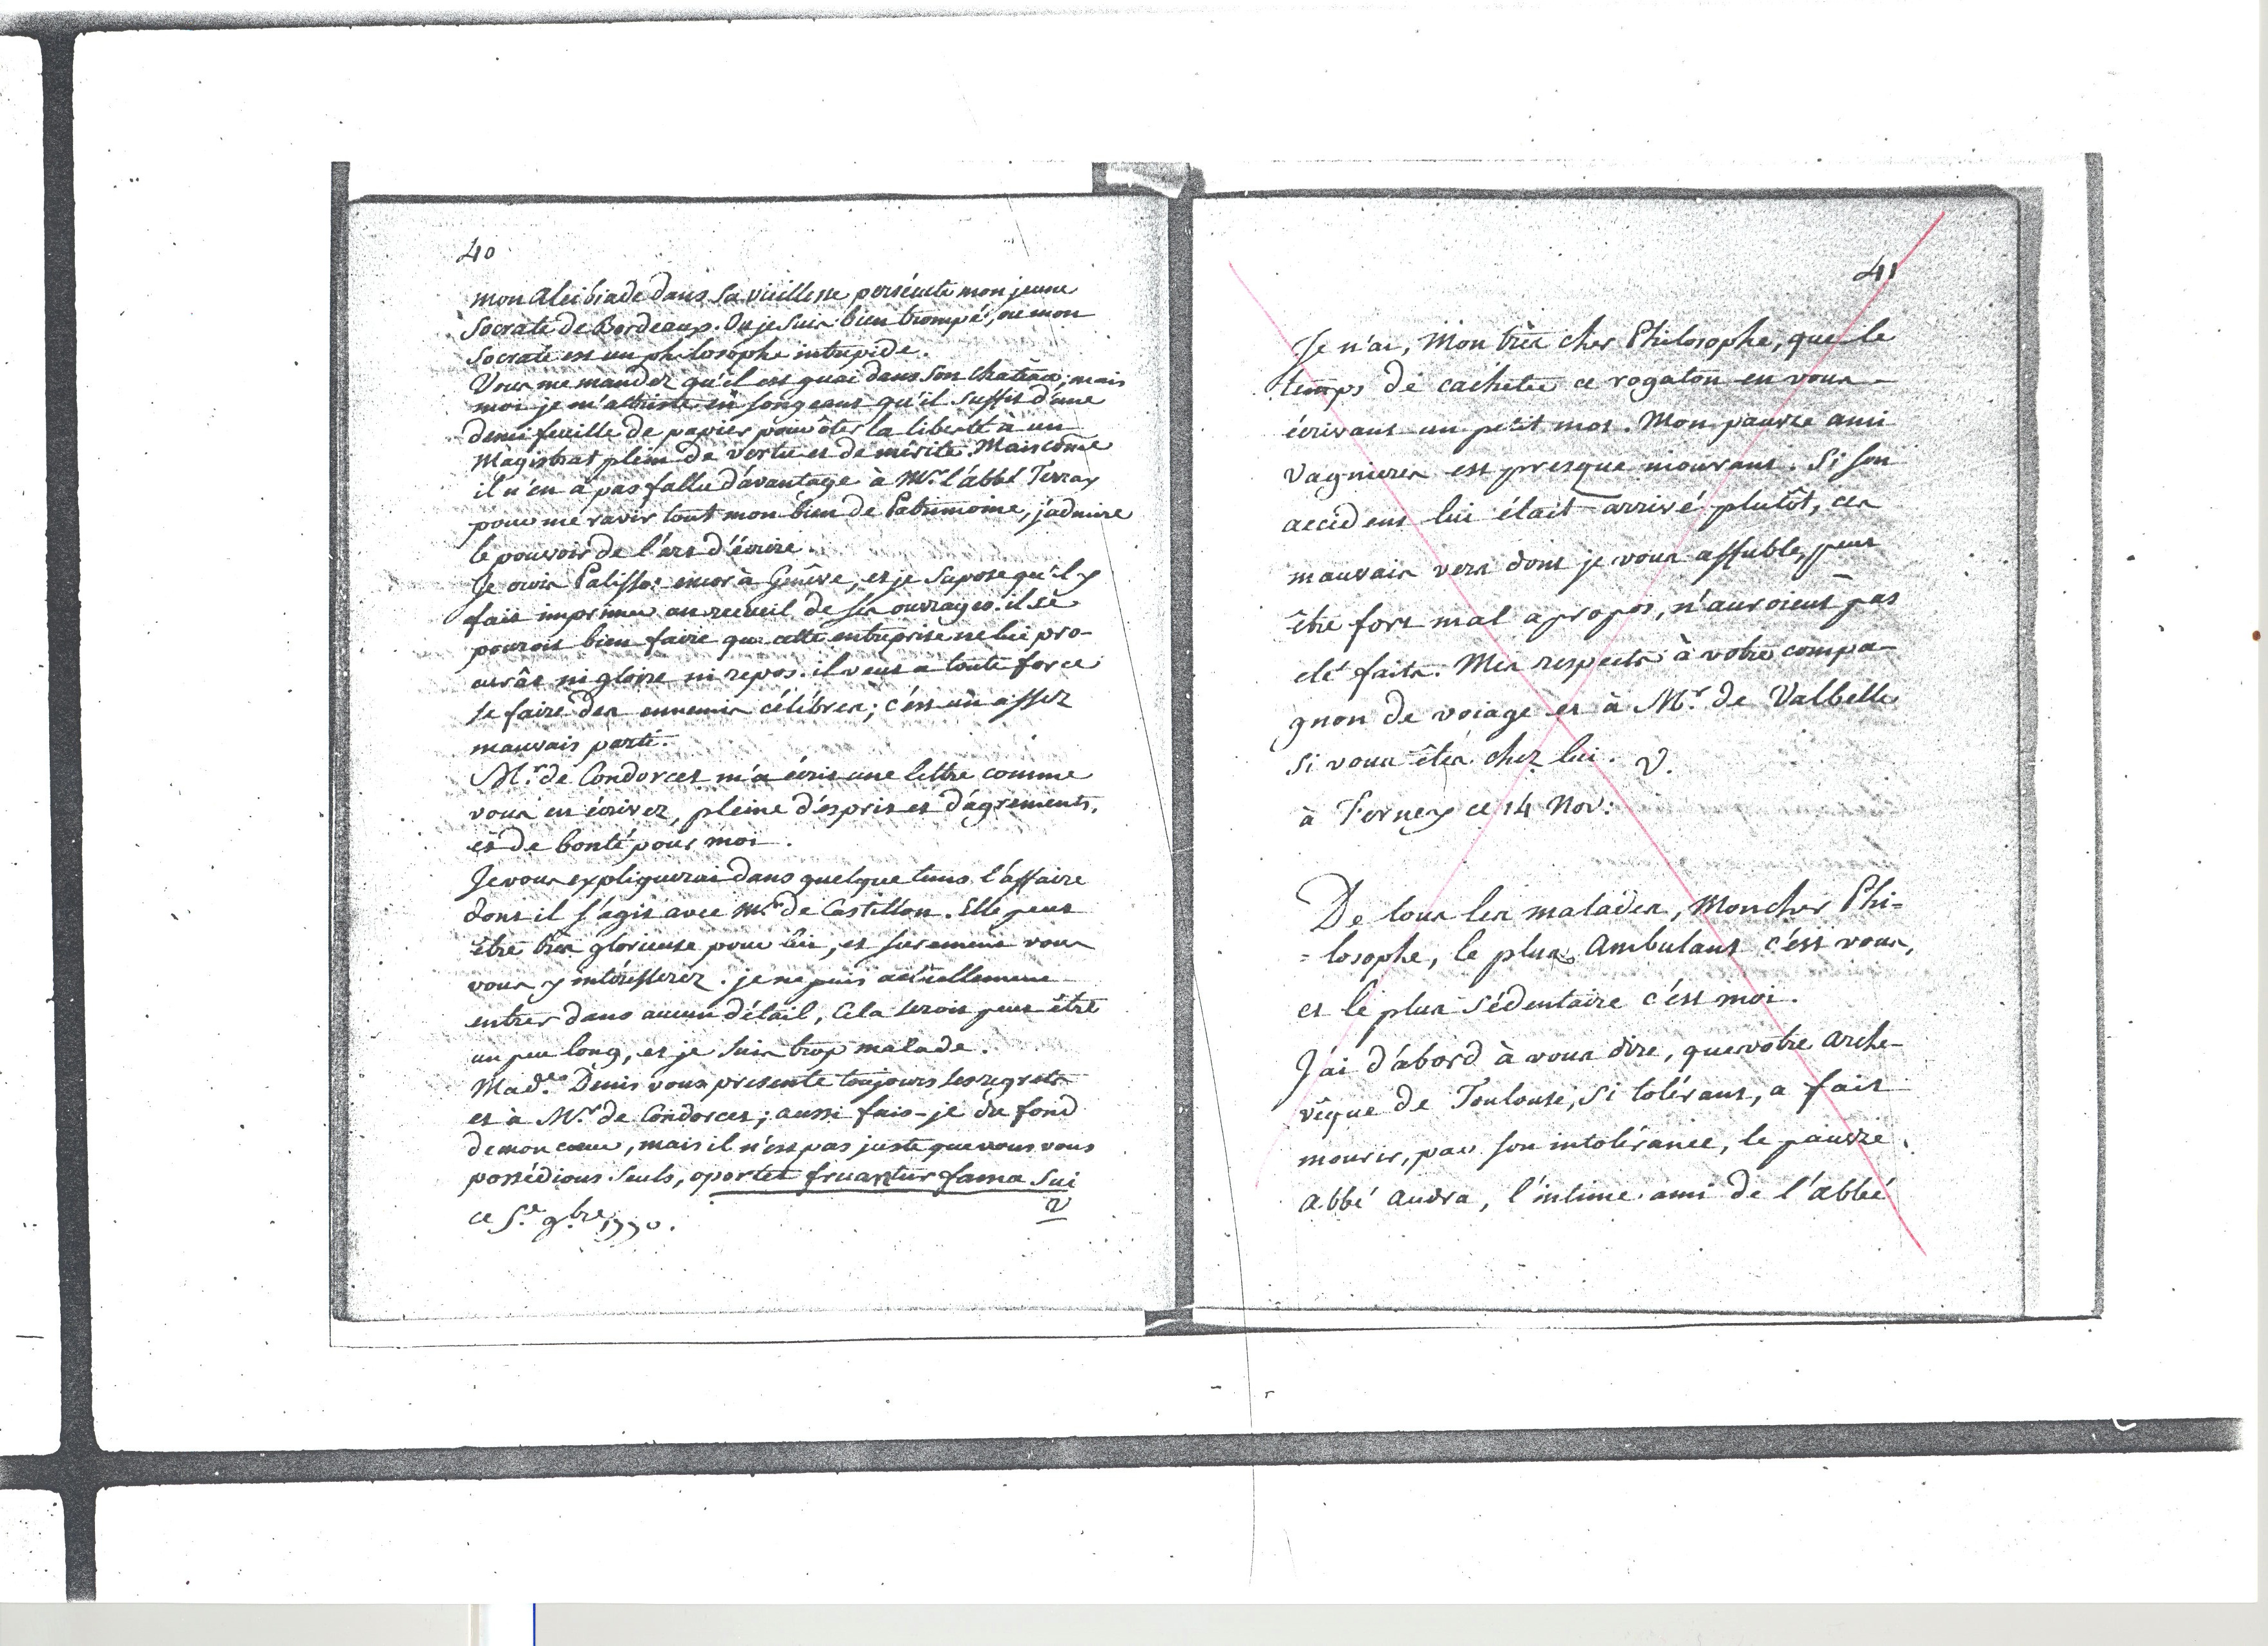 40
mon Alcibiade dans sa vieillesse persécute mon jeune
Socrate de Bordeaux. Ou je suis bien trompé, ou mon
Socrate est un philosophe intrepide.
Vous me mandez qu'il est guai dans son chateau; mais
moi je m'attriste en songeant qu'il suffit d'une
demi feuille de papier pour ôter la liberté à un
Magistrat plein de vertu et de mérite. Mais come
il n'en a pas fallu d'avantage à Mr. l'abbé Terray
pour me ravir tout mon bien de Patrimoine, j'admire
le pouvoir de l'art d'écrire.
Je crois Palissot encor à Genêve, et je supose qu'il y
fait imprimer un recueil de ses ouvrages. il se
pouroit bien faire que cette entreprise ne lui pro-
curât ni gloire ni repos. il veut a toute force
se faire des ennemis célébres; c'est un assez
mauvais parti.
Mr. de Condorcet m'a écrit une lettre comme
vous en écrivez, pleine d'esprit et d'agrements,
et de bonté pour moi.
Je vous expliquerai dans quelque tems l'affaire
dont il s'agit avec Mr. de Castillon. Elle peut
être très glorieuse pour lui, et surement vous
vous y intéresserez. je ne puis actuellement
entrer dans aucun détail, cela seroit peut être
un peu long, et je suis trop malade.
Made. Denis vous presente toujours ses regrets
et à Mr. de Condorcet; aussi fais-je du fond
de mon cœur, mais il n'est pas juste que nous vous
possédions seuls, oportet fruantur fama sui
ce 5.e 9.bre 1770. V
41
Je n'ai, Mon très cher Philosophe, que le
temps de cacheter ce rogaton en vous
écrivant un petit mot. Mon pauvre ami
Vagnieres est presque mourant. Si son
accident lui était arrivé plutôt, ces
mauvais vers dont je vous affuble, peut
être fort mal a propos, n'auroient pas
été faits. Mes respects à votre compa-
gnon de voiage et à Mr. de Valbelle
si vous êtes chez lui. V.
à Ferney ce 14 Nov:
De tous les malades, Mon cher Phi=
=losophe, le plus Ambulant c'est vous,
et le plus sédentaire c'est moi.
J'ai d'abord à vous dire, que votre Arche-
vêque de Toulouse, si tolérant, a fait
mourir, par son intolérance, le pauvre
abbé Audra, l'intime ami de l'abbé